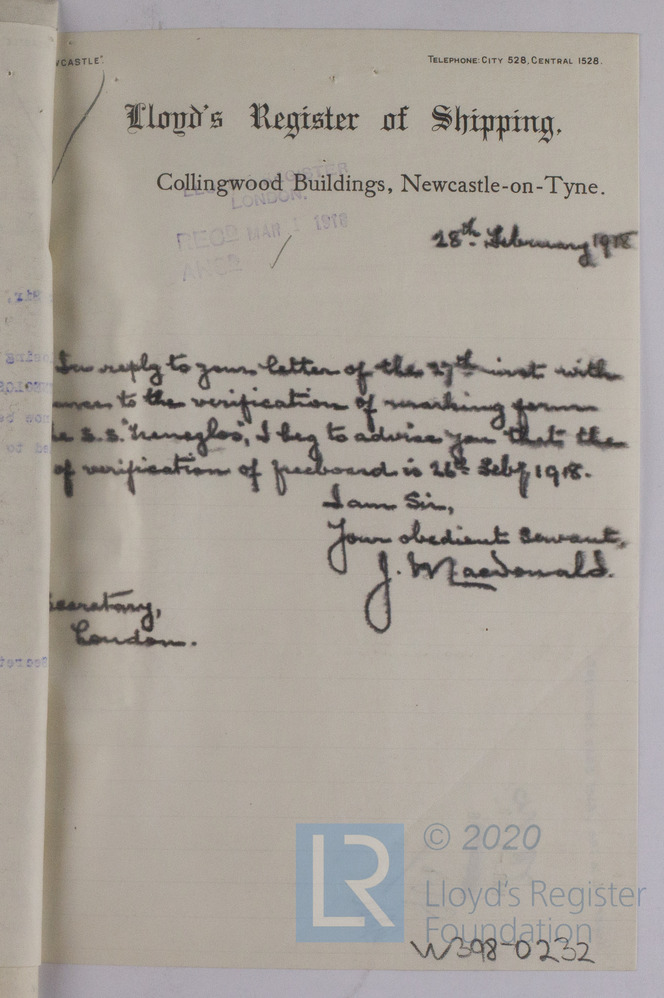 WCASTLE".
TELEPHONE: CITY 528, CENTRAL 1528.
Lloyd's Register of Shipping,
Collingwood Buildings, Newcastle-on-Tyne.
LONDON.
RECD MAR 1 1918
ANSD
28th February 1918
In reply to your letter of the 27th inst with
to the verification of marking form
S.S. "Treneglos", I beg to advise you that the
of verification of freeboard is 26th Feby 1918.
I am Sir,
Your obedient Servant,
J. Macdonald.
Secretary,
London.
LR
© 2020
Lloyd's Register
Foundation
W398-0232